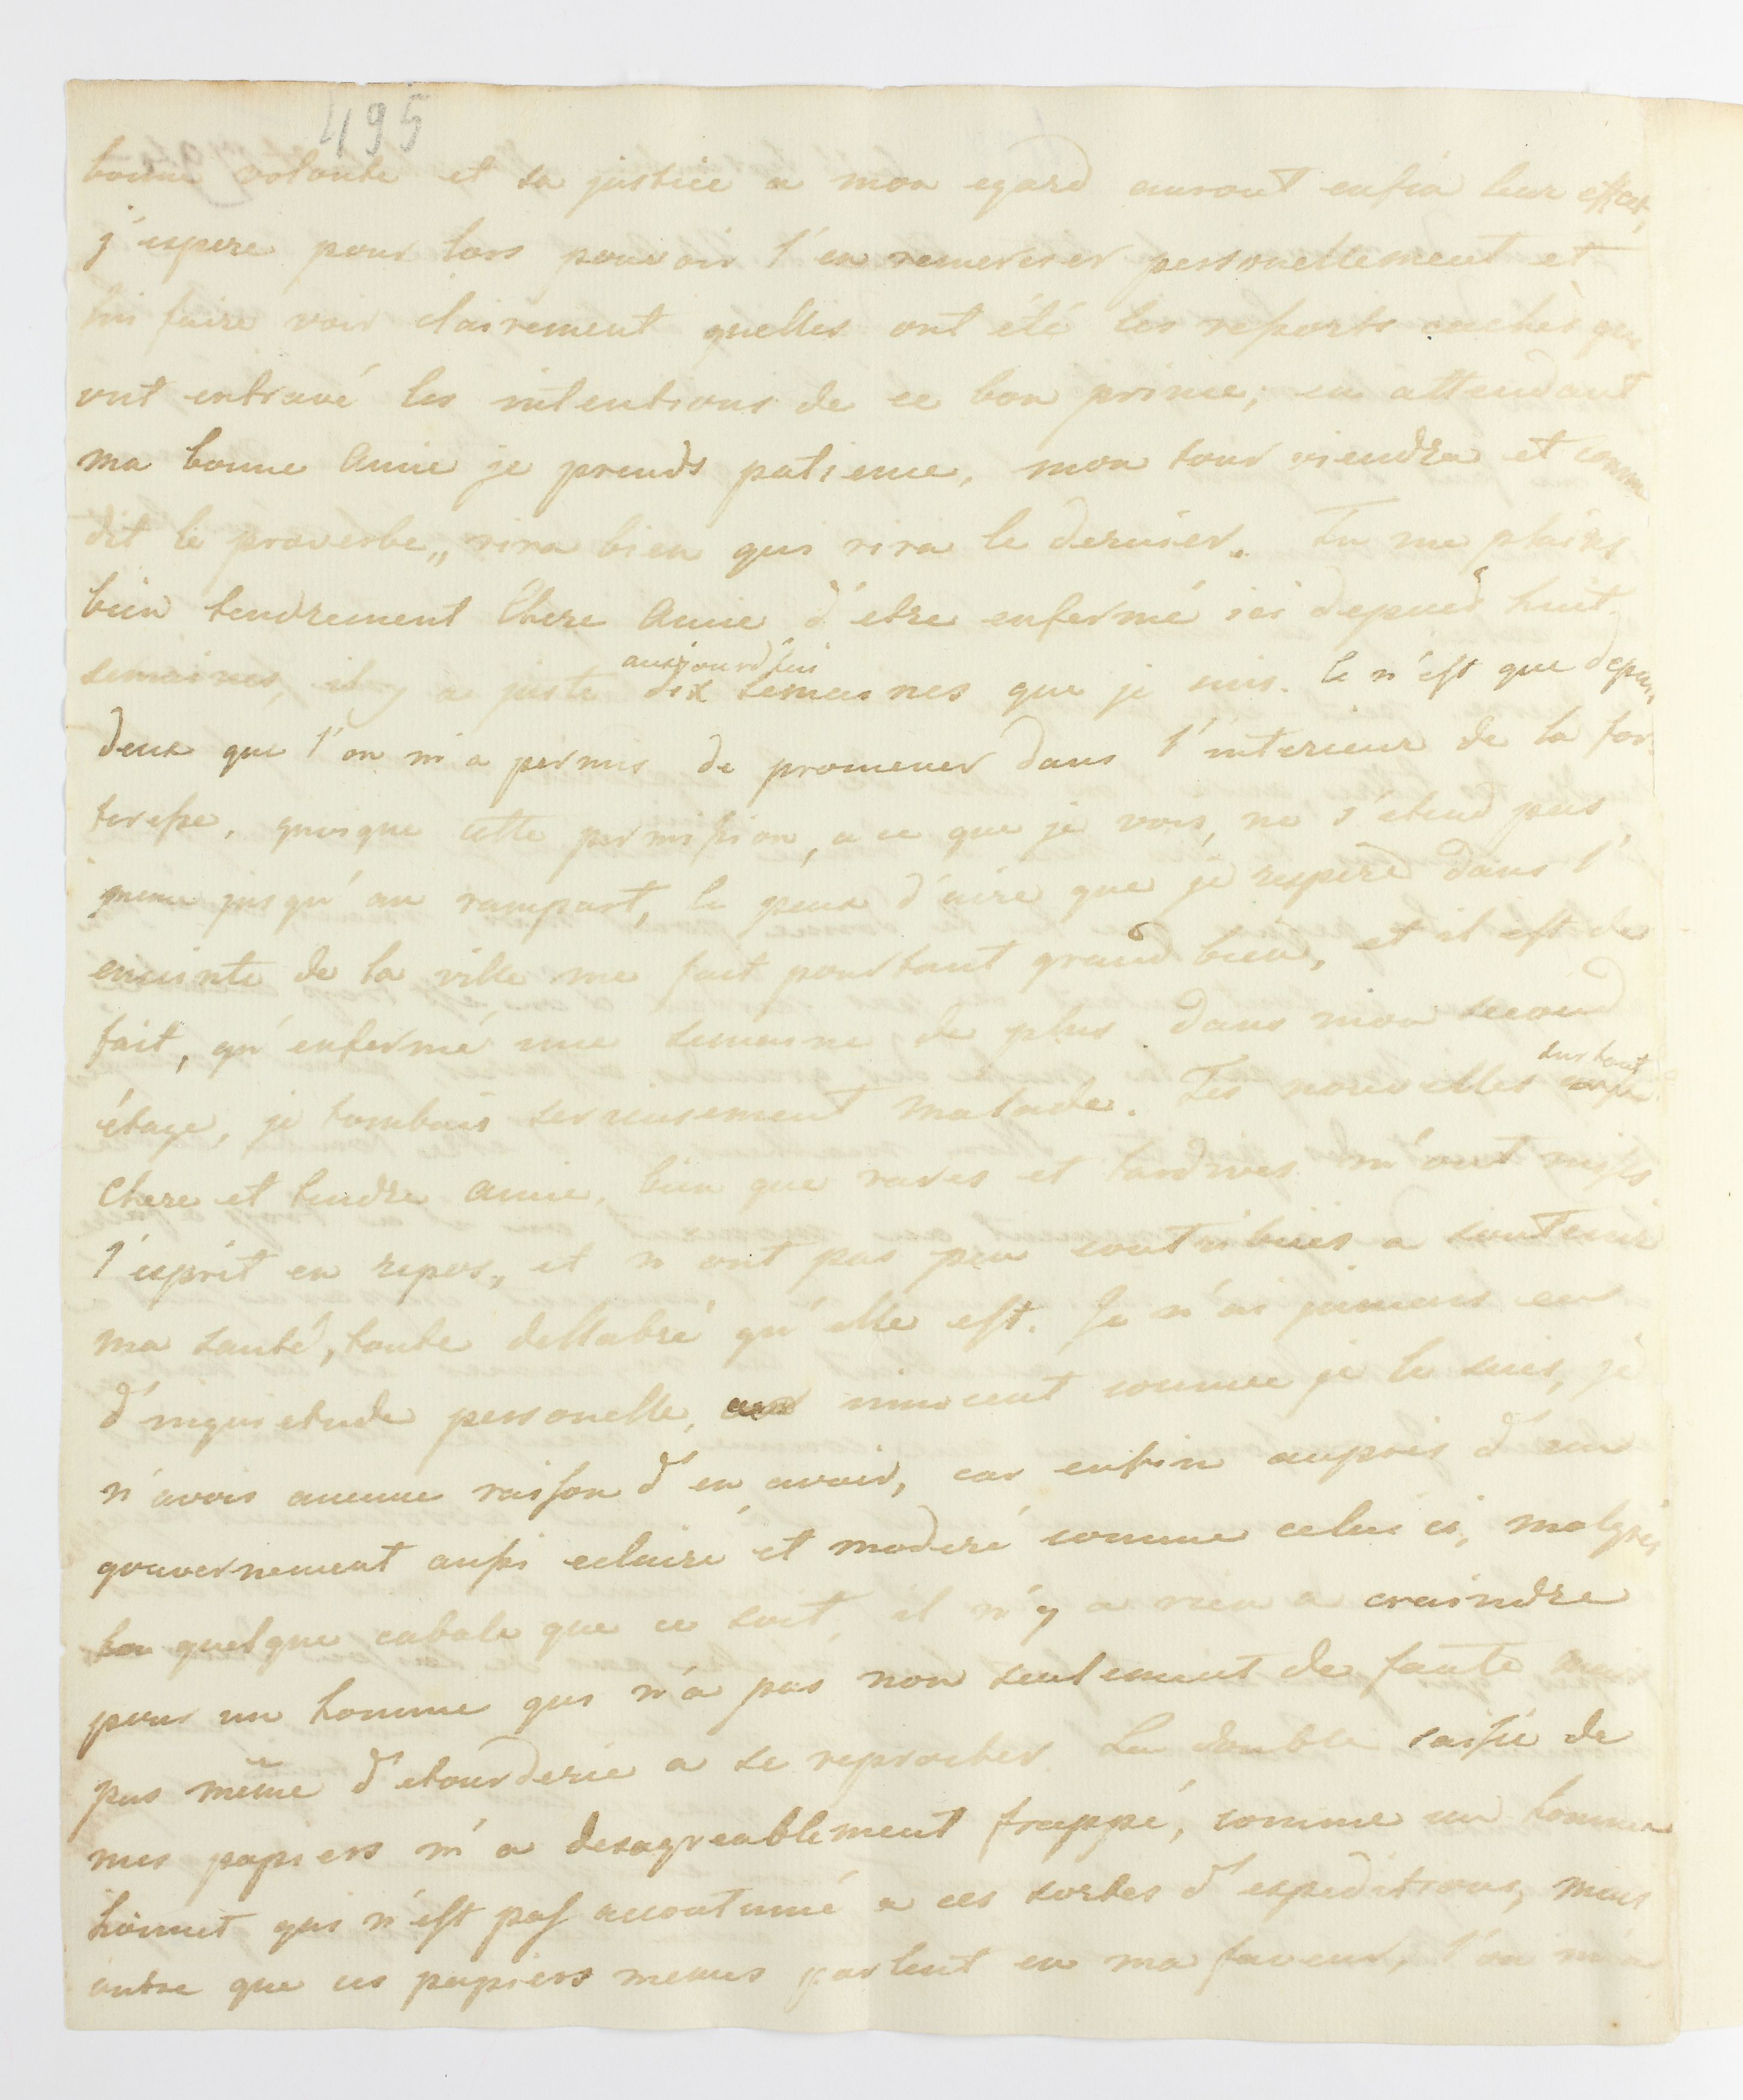 495
bonne volonté et sa justice a mon egard auront enfin leur effet,
j'espere pour lors pouvoir l'en remercier personellement et
lui faire voir clairement quelles ont été les reſsorts cachés qui
ont entravé les intentions de ce bon prince; en attendant
ma bonne Amie je prends patience, mon tour viendra et comme
dit le proverbe „ rira bien qui rira le dernier. Tu me plains
bien tendrement Chere Amie d'etre enfermé ici depuis huit
semaines, il y a juste aujourd'hui dix semaines que je suis. Ce n'eſt que depuis
deux que l'on m'a permis de promener dans l'interieur de la for-
tereſse, quoique cette permiſsion, a ce que je vois, ne s'etend pas
meme jusqu'au rampart, le peux d'aire que je respire dans l'
enceinte de la ville me fait pourtant grand bien, et il eſt de
fait, qu'enfermé une semaine de plus dans mon second
étage, je tombais serieusement malade. Tes nouvelles surtout
Chere et tendre Amie, bien que rares et tardives m'ont mises
l'esprit en repos, et n'ont pas peu contribuies a soutenir
ma santé, toute dellabré qu'elle eſt. Je n'ai jamais eu
d'inquietude personelle, innocent comme je le suis, je
n'avois aucune raiſon d'en avoir, car enfin aupres d'un
gouvernement auſsi eclairé et moderé comme celui ci, malgrés
quelque cabale que ce soit, il n'y a rien a craindre
pour un homme qui n'a pas non seulement de faute mais
pas même d'etourderie a se reprocher. La double saiſie de
mes papiers m'a desagreablement frappé, comme un homme
honnet qui n'eſt paſ accoutumé a ces sortes d'espeditions, mais
outre que ces papiers memes parlent en ma faveur, l'on m'a